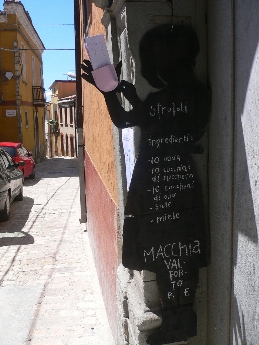 Struffoli
Ingredienti:
-10 uova
-10 cucchiai
di zucchero
-10 cucchiai
di olio
- sale
- miele
MACCHIA
VAL
FOR
TO
R E